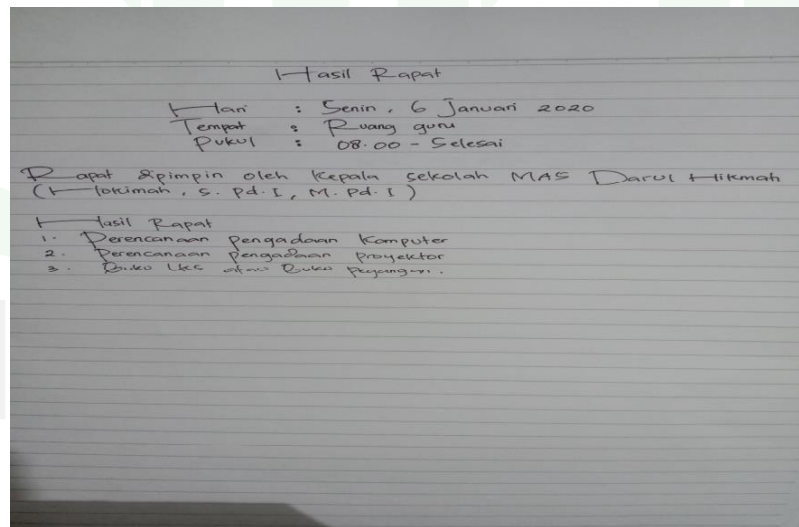 Hasil Rapat
Hari : Senin, 6 Januari 2020
Tempat : Ruang guru
Pukul : 08.00 - Selesai
Rapat dipimpin oleh Kepala sekolah MAS Darul Hikmah
(Hokimah, S. Pd. I, M. Pd. I)
Hasil Rapat
1. Perencanaan pengadaan Komputer
2. Perencanaan pengadaan proyektor
3. Buku LKS atau Buku